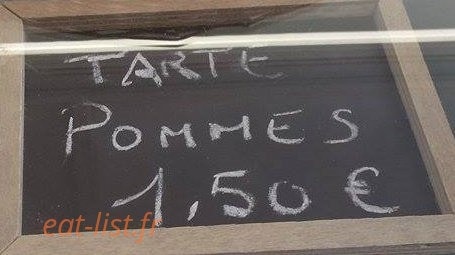 TARTE
POMMES
1,50 €
eat-list.fr